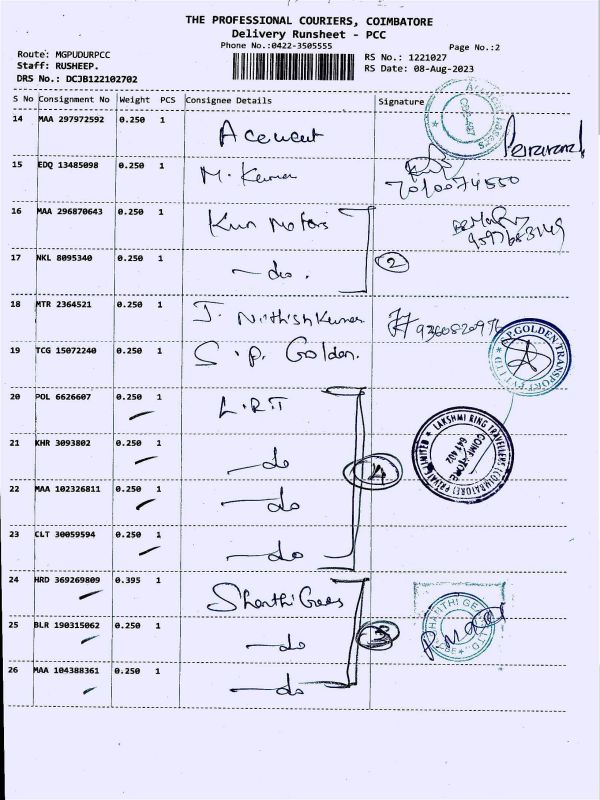 THE PROFESSIONAL COURIERS, COIMBATORE
Delivery Runsheet - PCC
Phone No.:0422-3505555
Page No.:2
Route: MGPUDURPCC
RS No.: 1221027
Staff: RUSHEEP.
RS Date: 08-Aug-2023
DRS No.: DCJB122102702
S No Consignment No Weight PCS Consignee Details Signature
14 MAA 297972592 0.250 1
15 EDQ 13485098 0.250 1 M. Kumar
16 MAA 296870643 0.250 1 Kun Motors
17 NKL 8095340 0.250 1 -do. 2
18 MTR 2364521 0.250 1 J. Nithish Kumar
19 TCG 15072240 0.250 1 S.P. Golden.
S.P.GOLDEN TRANSPORT
20 POL 6626607 0.250 1 L.R.T
LAKSHMI RING TRAVELLERS (COIMBATORE) PRIVATE LIMITED
COIMBATORE
641 402
21 KHR 3093802 0.250 1 -do 4
22 MAA 102326811 0.250 1 -do
23 CLT 30059594 0.250 1 -do
24 HRD 369269809 0.395 1 Shanthi Gears
25 BLR 190315062 0.250 1 -do 3
SHANTHI GE
26 MAA 104388361 0.250 1 -do